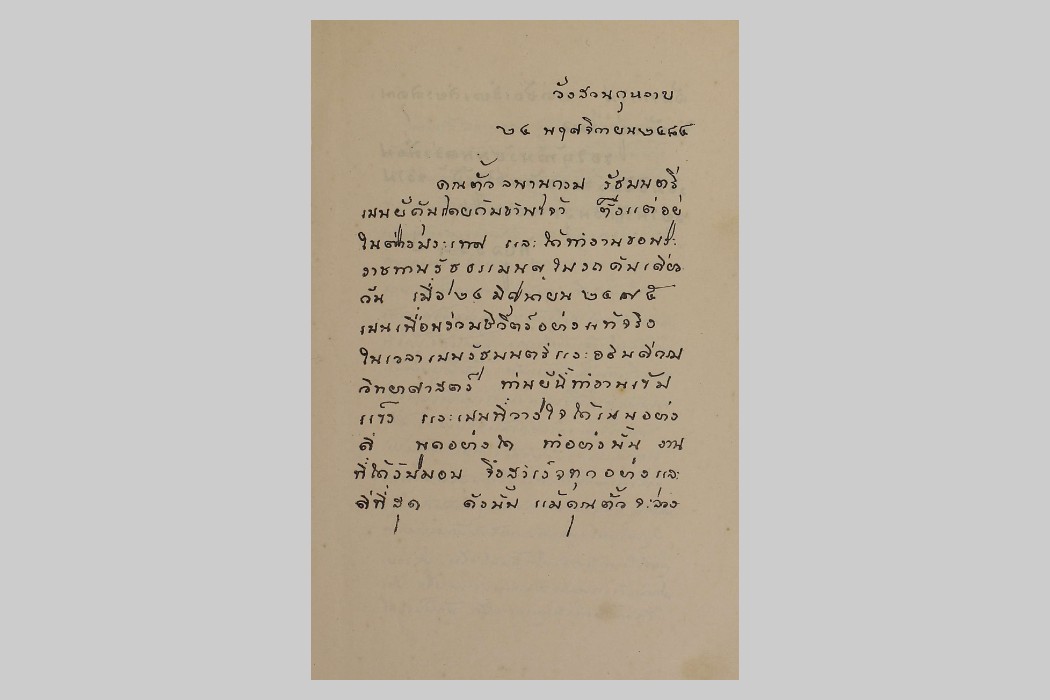 วังสวนกุหลาบ
๒๔ พฤศจิกายน ๒๔๘๔
คุณตั้ว ลพานุกรม รัฐมนตรี
เปนผู้คุ้นเคยกับข้าพเจ้า ตั้งแต่อยู่
ในต่างประเทศ และได้ทำงานขอพระ
ราชทานรัฐธรรมนูญในรถคันเดียว
กัน เมื่อ ๒๔ มิถุนายน ๒๔๗๕
เปนเพื่อนร่วมชีวิตร์อย่างแท้จริง
ในเวลาเปนรัฐมนตรีและอธิบดีกรม
วิทยาศาสตร์ ท่านผู้นี้ทำงานเข้ม
แข็ง และเปนที่วางใจได้เปนอย่าง
ดี พูดอย่างใด ทำอย่างนั้น งาน
ที่ได้รับมอบ จึงสำเร็จทุกอย่างและ
ดีที่สุด ดังนั้น แม้คุณตั้วจะล่วง